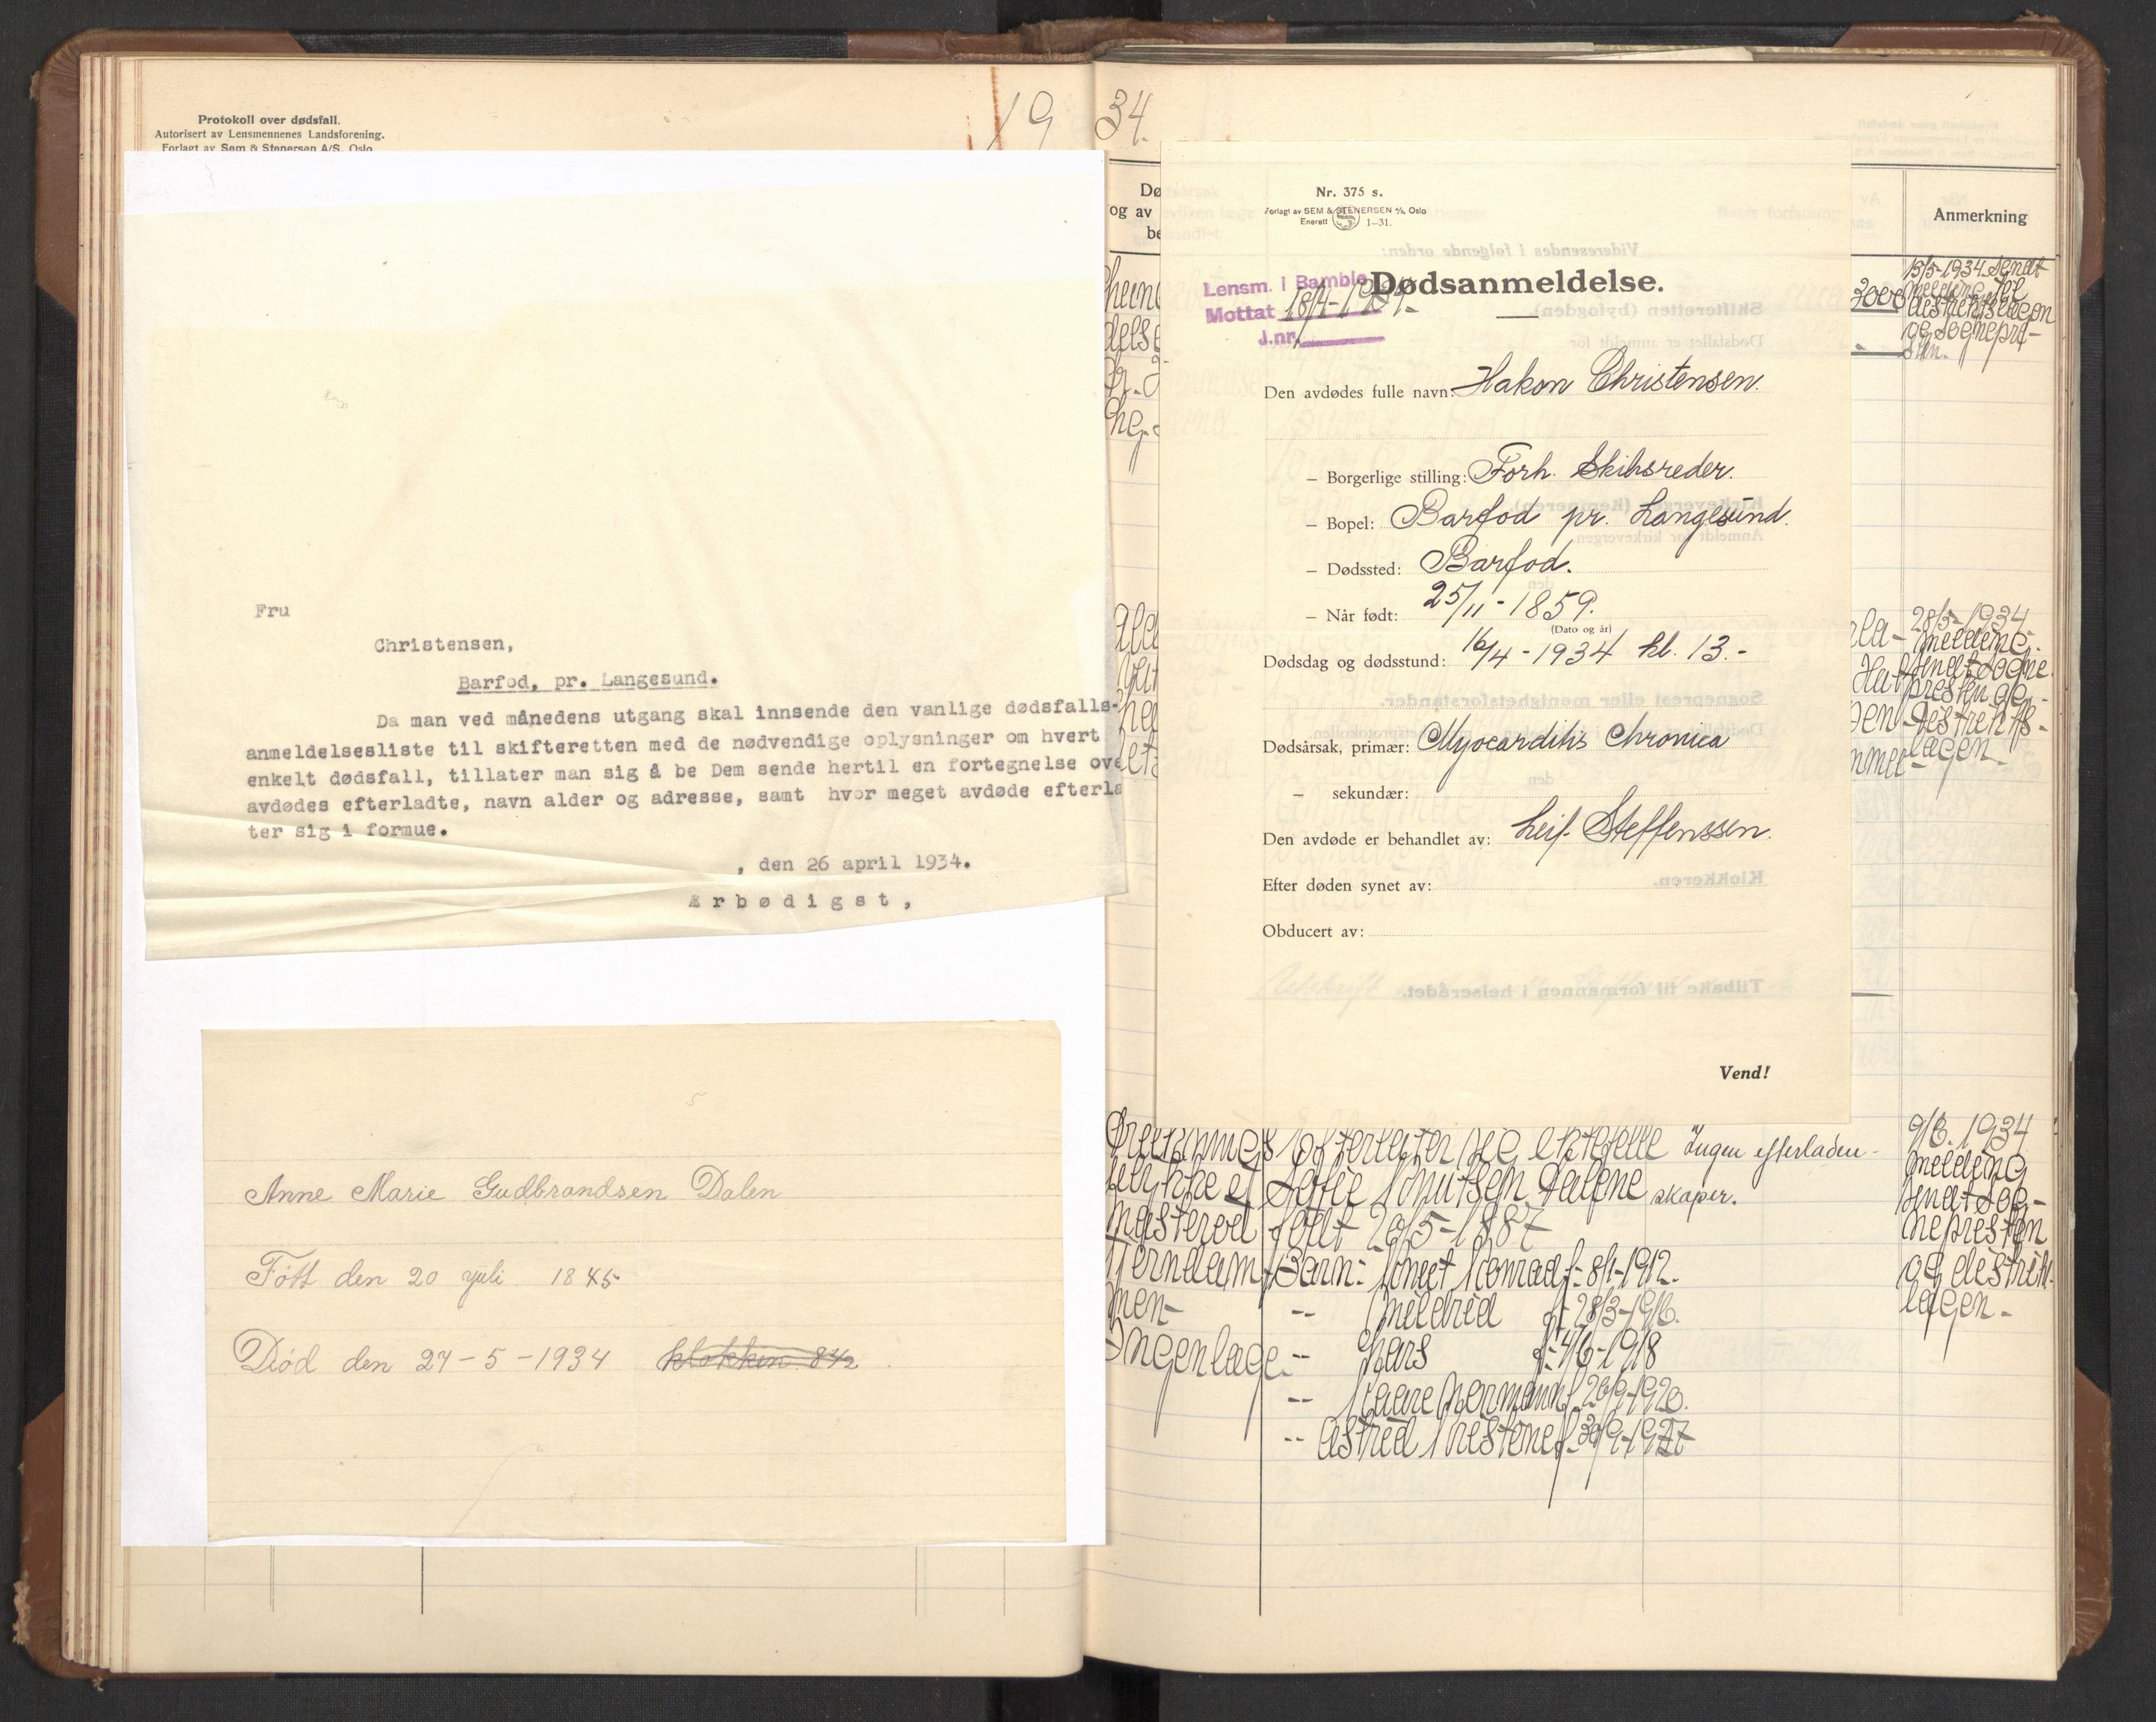 Protokoll over dødsfall.
Autorisert av Lensmennenes Landsforening.
Forlagt av Sem & Stenersen A/S, Oslo
19 34.
Fru
Christensen,
Barfod, pr. Langesund.
Da man ved månedens utgang skal innsende den vanlige dødsfalls-
anmeldelsesliste til skifteretten med de nødvendige oplysninger om hvert
enkelt dødsfall, tillater man sig å be Dem sende hertil en fortegnelse ove
avdødes efterladte, navn alder og adresse, samt hvor meget avdøde efterla
ter sig i formue.
, den 26 april 1934.
Ærbødigst,
Anne Marie Gudbrandsen Dalen
Fött den 20 yuli 1845
Död den 27-5-1934 klokken 8½
Nr. 375 s.
Forlagt av SEM & STENERSEN A/S, Oslo
Enerett 1-31.
Lensm. i Bamble
Mottat 18/4-1934.
J.nr.
Dødsanmeldelse.
Den avdødes fulle navn: Hakon Christensen.
– Borgerlige stilling: Forh. Skibsreder.
– Bopel: Barfod pr. Langesund.
– Dødssted: Barfod.
– Når født: 25/11-1859.
(Dato og år)
Dødsdag og dødsstund: 16/4-1934 kl. 13.-
Dødsårsak, primær: Myocarditis Chronica
– sekundær:
Den avdøde er behandlet av: Leif Steffenssen.
Efter døden synet av:
Obducert av:
Vend!
Dø
og av
be
Anmerkning
3000
15/5-1934 sendt
melding til
distriktslegen
og sognepre-
sten.
28/5-1934
melding
sendt sogne
presten og
distrikts-
lagen
efterlater sig ektefelle Ingen efterladen-
Sofie Knutsen Dalene skaper.
født 20/5-1887
Barn: Knut Konrad f. 8/1-1912.
-- Mildrid f. 28/3-1916.
-- Lars f. 4/6-1918
-- Kaare Hermann f. 20/9-1920.
-- Astrid Kristine f. 30/9-1927
Ingen læge
9/6. 1934
melding
sendt sog-
nepresten
og distrikts
lægen-